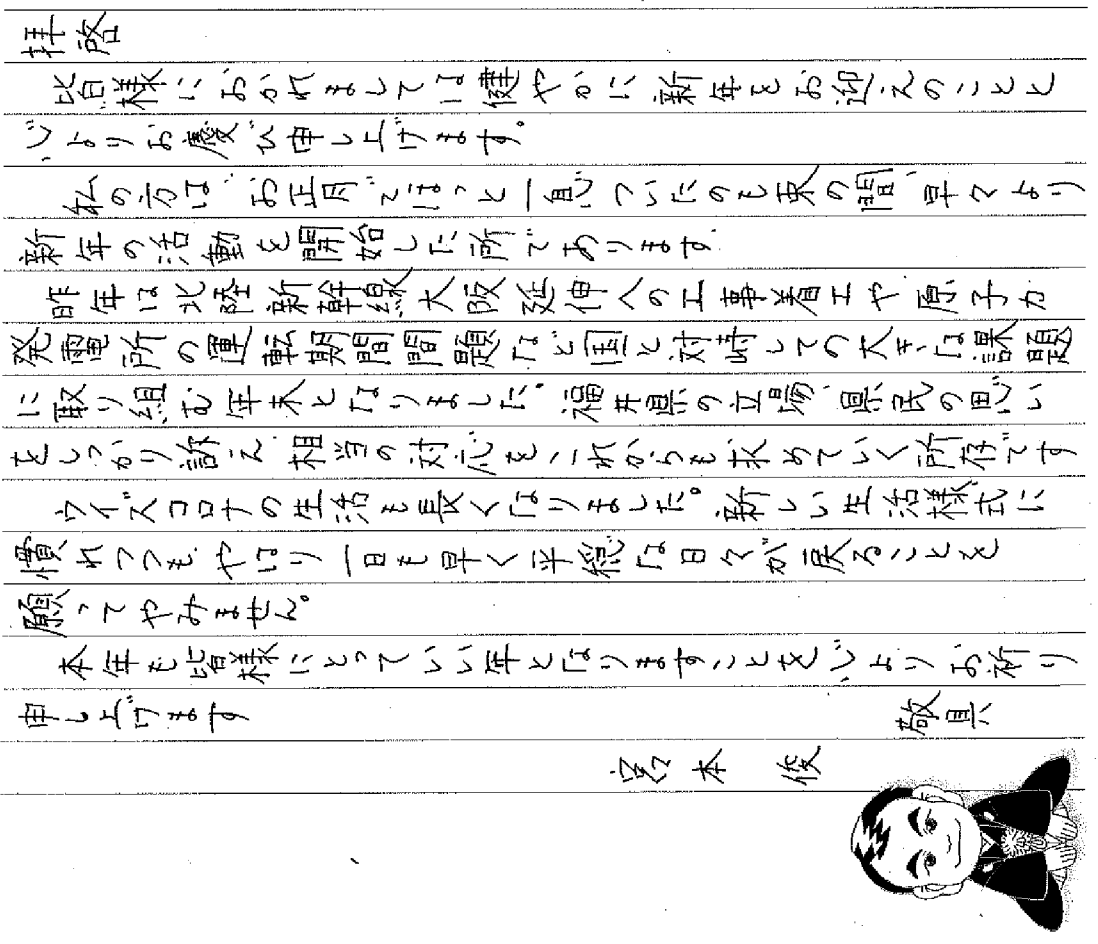 拝啓
皆様におかれましては健やかに新年をお迎えのことと
心よりお慶び申し上げます。
私の方は、お正月でほっと一息ついたのも束の間、早々より
新年の活動を開始した所であります。
昨年は北陸新幹線大阪延伸への工事着工や原子力
発電所の運転期間問題など国と対峙しての大きな課題
に取り組む年末となりました。福井県の立場、県民の思い
をしっかり訴え、相当の対応をこれからも求めていく所存です
ウイズコロナの生活も長くなりました。新しい生活様式に
慣れつつも、やはり一日も早く平穏な日々が戻ることを
願ってやみません。
本年も皆様にとっていい年となりますことを心よりお祈り
申し上げます 敬具
宮本 俊